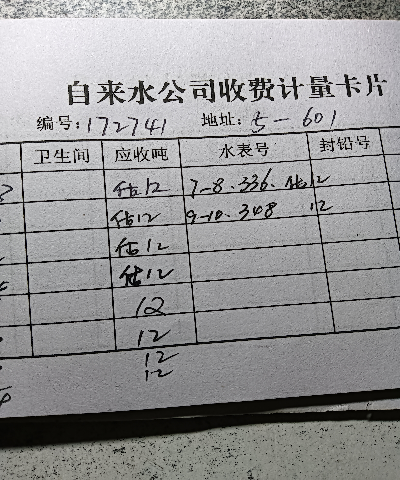 自来水公司收费计量卡片
编号:172741 地址:5-601
卫生间 应收吨 水表号 封铅号
估12 7-8.336.估12
估12 9-10.348 12
估12
估12
12
12
12
12